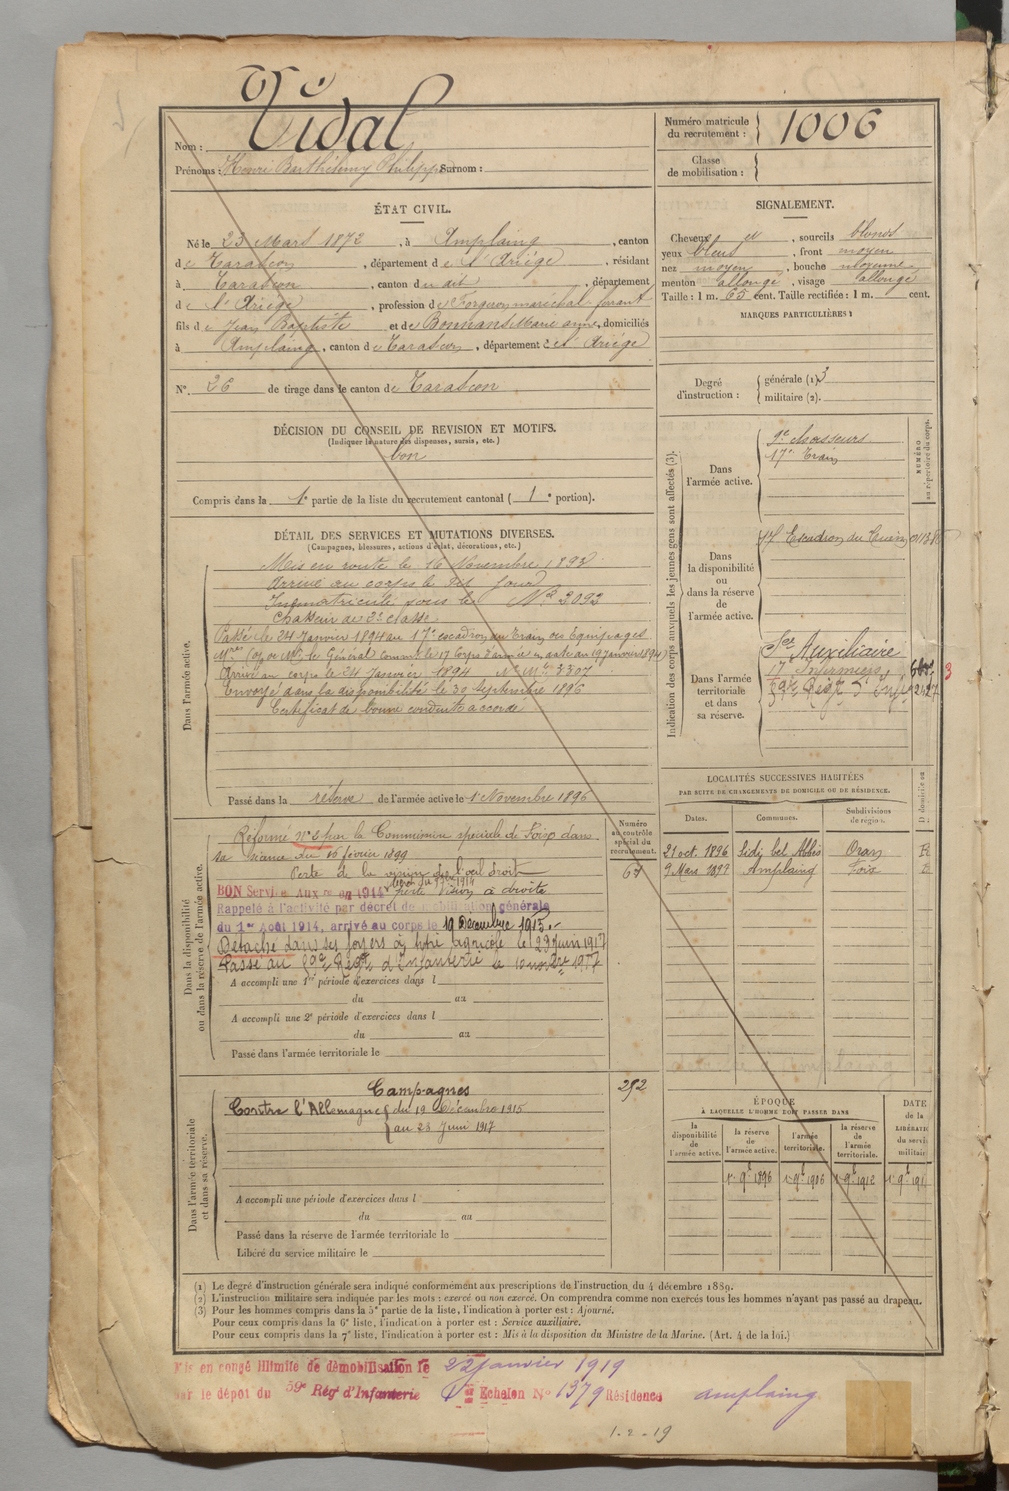 Nom : Vidal
Prénoms : Henri Barthélemy Philippe Surnom :
Numéro matricule du recrutement : 1006
Classe de mobilisation :
ÉTAT CIVIL.
Né le 23 Mars 1872, à Amplaing, canton
de Tarascon, département de l'Ariège, résidant
à Tarascon, canton du dit, département
de l'Ariège, profession de Forgeron maréchal ferrant
fils de Jean Baptiste et de Bonnans Marie anne, domiciliés
à Amplaing, canton de Tarascon, département de l'Ariège
N° 26 de tirage dans le canton de Tarascon
SIGNALEMENT.
Cheveux et, sourcils blonds
yeux bleus, front moyen
nez moyen, bouche moyenne
menton allongé, visage allongé
Taille : 1 m. 65 cent. Taille rectifiée : 1 m. cent.
MARQUES PARTICULIÈRES :
Degré d'instruction :
générale (1) 3
militaire (2).
DÉCISION DU CONSEIL DE REVISION ET MOTIFS.
(Indiquer la nature des dispenses, sursis, etc.)
bon
Compris dans la 1e partie de la liste du recrutement cantonal ( 1e portion).
DÉTAIL DES SERVICES ET MUTATIONS DIVERSES.
(Campagnes, blessures, actions d'éclat, décorations, etc.)
Dans l'armée active.
Mis en route le 16 Novembre 1893
Arrivé au corps le dit jour
Immatriculé sous le N° 2092
Chasseur de 2e classe
Passé le 24 Janvier 1894 au 17e escadron du Train des Equipages
Mres le Général commt le 17 Corps d'armée en date du 19 Janvier 1894
Arrivé au corps le 24 Janvier 1894 N° Mle 3307
Envoyé dans la disponibilité le 30 Septembre 1896
Certificat de bonne conduite accordé
Passé dans la réserve de l'armée active le 1 Novembre 1896
Indication des corps auxquels les jeunes gens sont affectés (3).
NUMÉRO au répertoire du corps.
Dans l'armée active.
9e chasseurs
17e Train
Dans la disponibilité ou dans la réserve de l'armée active.
17 Escadron du Train
Dans l'armée territoriale et dans sa réserve.
Sce Auxiliaire
17 Infirmiers
59e Régt d'Infie
3
LOCALITÉS SUCCESSIVES HABITÉES
PAR SUITE DE CHANGEMENTS DE DOMICILE OU DE RÉSIDENCE.
Dates. Communes. Subdivisions de région.
21 oct. 1896 Sidi bel Abbès Oran R
9 Mars 1899 Amplaing Foix
Numéro au contrôle spécial du recrutement.
67
Dans la disponibilité ou dans la réserve de l'armée active.
Réformé N° 2 par la Commission spéciale de Foix dans
sa séance du 16 février 1899
Perte de la vision de l'œil droit
BON Service Auxre en 1914 perte vision à droite
Rappelé à l'activité par décret de mobilisation générale
du 1er Août 1914, arrivé au corps le 19 Décembre 1915.
Détaché dans ses foyers agricole le 23 Juin 1917
Passé au 59e Régt d'Infanterie le 10 novbre 1917
A accompli une 1re période d'exercices dans l
du au
A accompli une 2e période d'exercices dans l
du au
Passé dans l'armée territoriale le
292
Dans l'armée territoriale et dans sa réserve.
Campagnes
Contre l'Allemagne du 19 Décembre 1915
au 23 Juin 1917
A accompli une période d'exercices dans l
du au
Passé dans la réserve de l'armée territoriale le
Libéré du service militaire le
ÉPOQUE
À LAQUELLE L'HOMME DOIT PASSER DANS
DATE de la
la disponibilité de l'armée active.
la réserve de l'armée active.
l'armée territoriale.
la réserve de l'armée territoriale.
1er 9bre 1896 1er 9bre 1906 1er 9bre 1912
(1) Le degré d'instruction générale sera indiqué conformément aux prescriptions de l'instruction du 4 décembre 1889.
(2) L'instruction militaire sera indiquée par les mots : exercé ou non exercé. On comprendra comme non exercés tous les hommes n'ayant pas passé au drapeau.
(3) Pour les hommes compris dans la 5e partie de la liste, l'indication à porter est : Ajourné.
Pour ceux compris dans la 6e liste, l'indication à porter est : Service auxiliaire.
Pour ceux compris dans la 7e liste, l'indication à porter est : Mis à la disposition du Ministre de la Marine. (Art. 4 de la loi.)
Mis en congé illimité de démobilisation le 22 janvier 1919
par le dépôt du 59e Régt d'Infanterie Echelon N° 1379 Résidence Amplaing
1-2-19